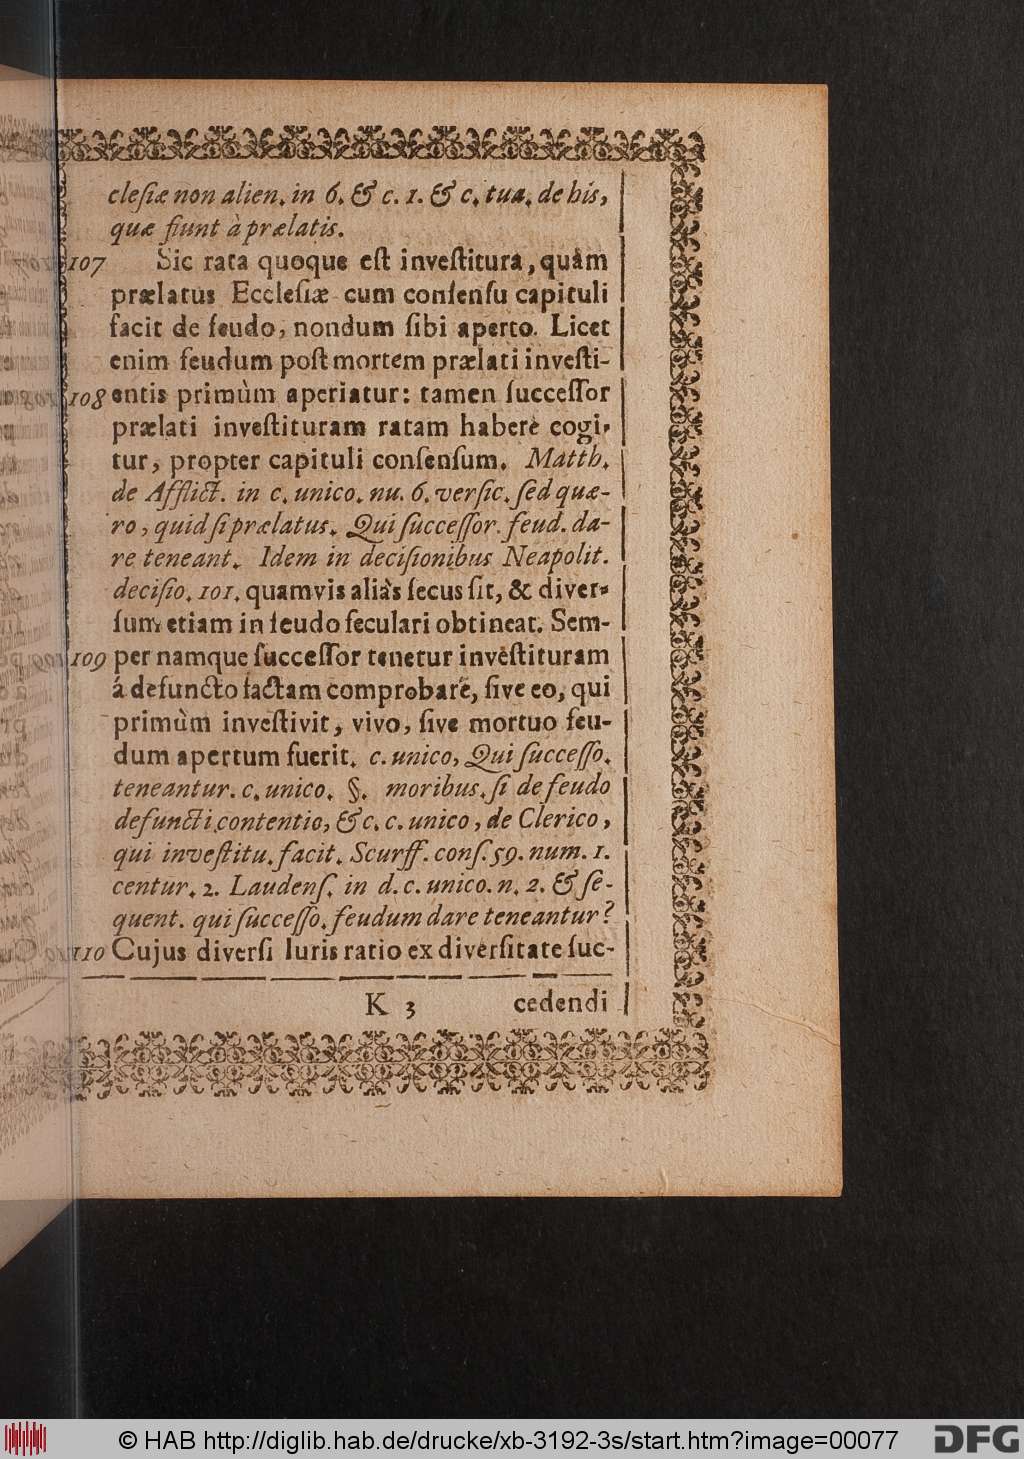 cleſiæ non alien. in 6. & c. 1. & c. tua. de his,
quæ fiunt à prælatis.
107 Sic rata quoque eſt inveſtitura, quàm
prælatus Eccleſiæ cum conſenſu capituli
facit de feudo, nondum ſibi aperto. Licet
enim feudum poſt mortem prælati inveſti-
108 entis primùm aperiatur: tamen ſucceſſor
prælati inveſtituram ratam habere cogi-
tur, propter capituli conſenſum. Matth.
de Afflict. in c. unico. nu. 6. verſic. ſed quæ-
ro, quid ſi prælatus. Qui ſucceſſor. feud. da-
re teneant. Idem in deciſionibus Neapolit.
deciſio. 101. quamvis aliàs ſecus ſit, & diver-
ſum etiam in feudo ſeculari obtineat. Sem-
109 per namque ſucceſſor tenetur inveſtituram
á defuncto factam comprobare, ſive eo, qui
primùm inveſtivit, vivo, ſive mortuo feu-
dum apertum fuerit. c. unico, Qui ſucceſſo.
teneantur. c. unico. §. moribus. ſi de feudo
defuncti contentio, & c. c. unico, de Clerico,
qui inveſtitu. facit. Scurff. conſ. 59. num. 1.
centur. 2. Laudenſ. in d. c. unico. n. 2. & ſe-
quent. qui ſucceſſo. feudum dare teneantur?
110 Cujus diverſi Iuris ratio ex diverſitate ſuc-
K 3 cedendi
© HAB http://diglib.hab.de/drucke/xb-3192-3s/start.htm?image=00077
DFG